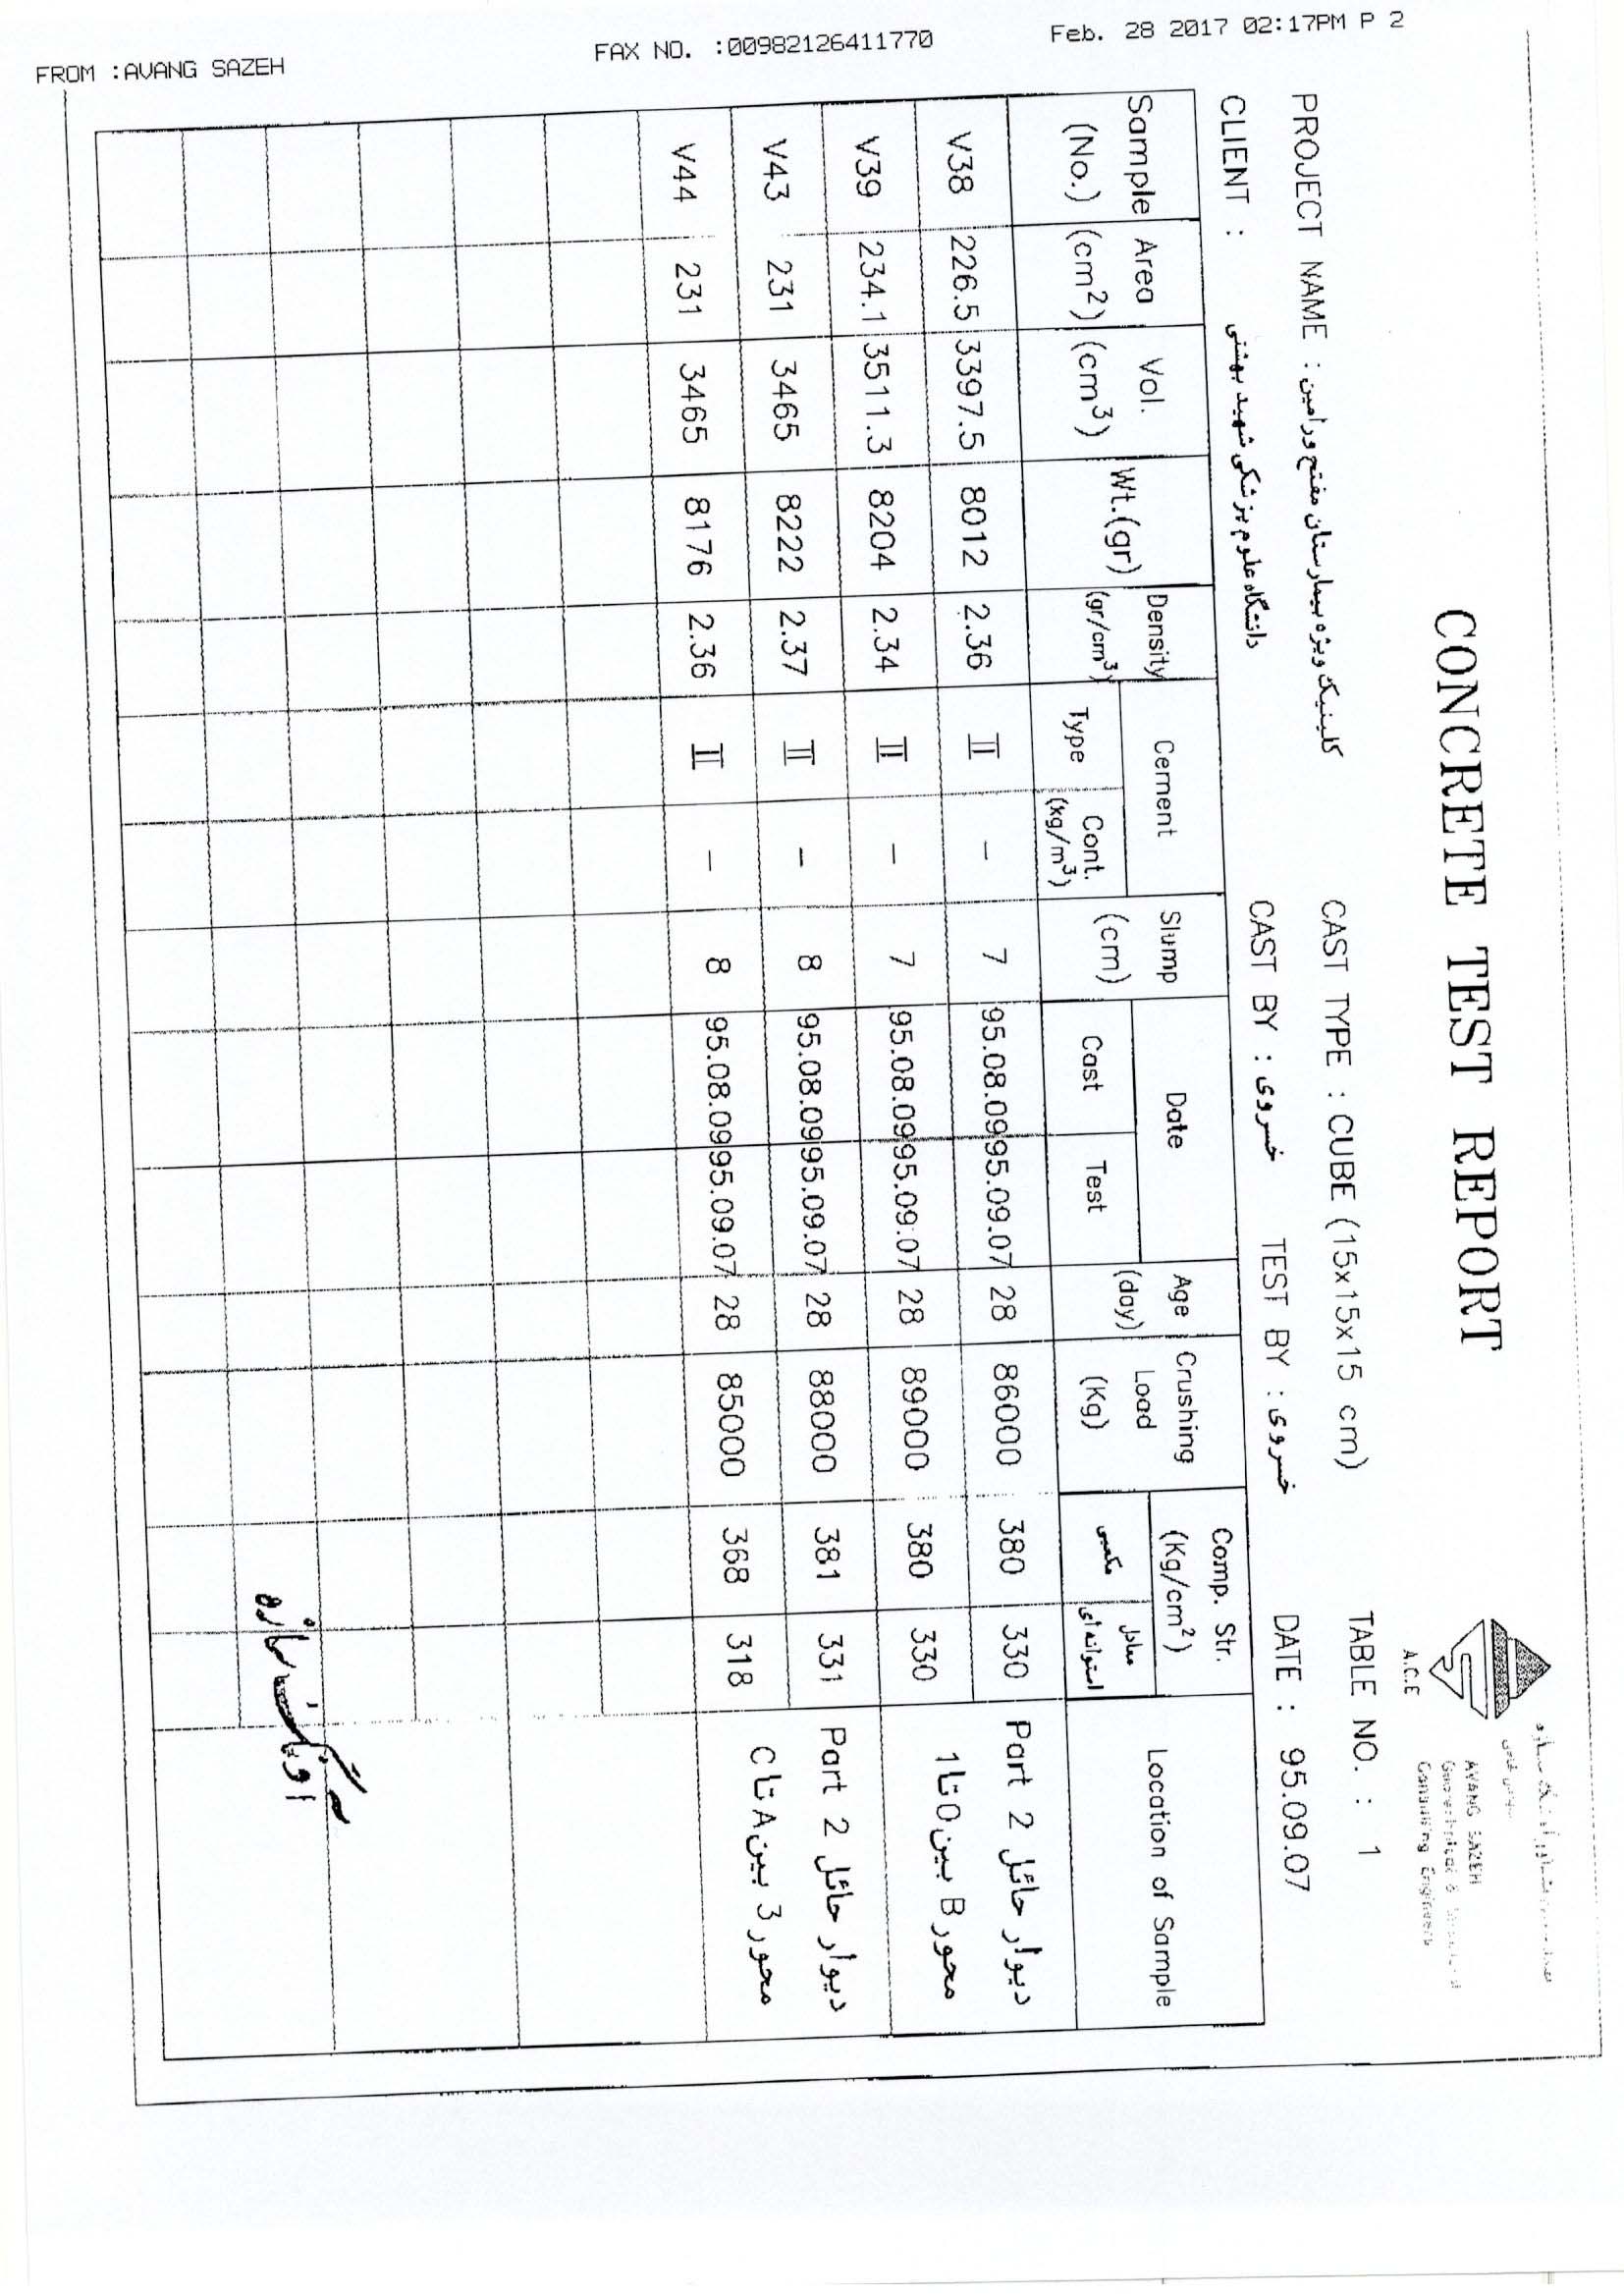 FROM :AVANG SAZEH FAX NO. :00982126411770 Feb. 28 2017 02:17PM P 2
AVANG SAZEH
Consulting Engineers
A.C.E
CONCRETE TEST REPORT
PROJECT NAME : کلینیک ویژه بیمارستان مفتح ورامین CAST TYPE : CUBE (15x15x15 cm) TABLE NO. : 1
CLIENT : دانشگاه علوم پزشکی شهید بهشتی CAST BY : خسروی TEST BY : خسروی DATE : 95.09.07
Sample (No.) Area (cm²) Vol. (cm³) Wt.(gr) Density (gr/cm³) Cement Type Cont. (kg/m³) Slump (cm) Date Cast Test Age (day) Crushing Load (Kg) Comp. Str. (Kg/cm²) مکعبی معادل استوانه ای Location of Sample
V38 226.5 3397.5 8012 2.36 II – 7 95.08.09 95.09.07 28 86000 380 330 دیوار حائل Part 2
V39 234.1 3511.3 8204 2.34 II – 7 95.08.09 95.09.07 28 89000 380 330 محور B بین 0 تا 1
V43 231 3465 8222 2.37 II – 8 95.08.09 95.09.07 28 88000 381 331 دیوار حائل Part 2
V44 231 3465 8176 2.36 II – 8 95.08.09 95.09.07 28 85000 368 318 محور 3 بین A تا C
آوانگ سازه